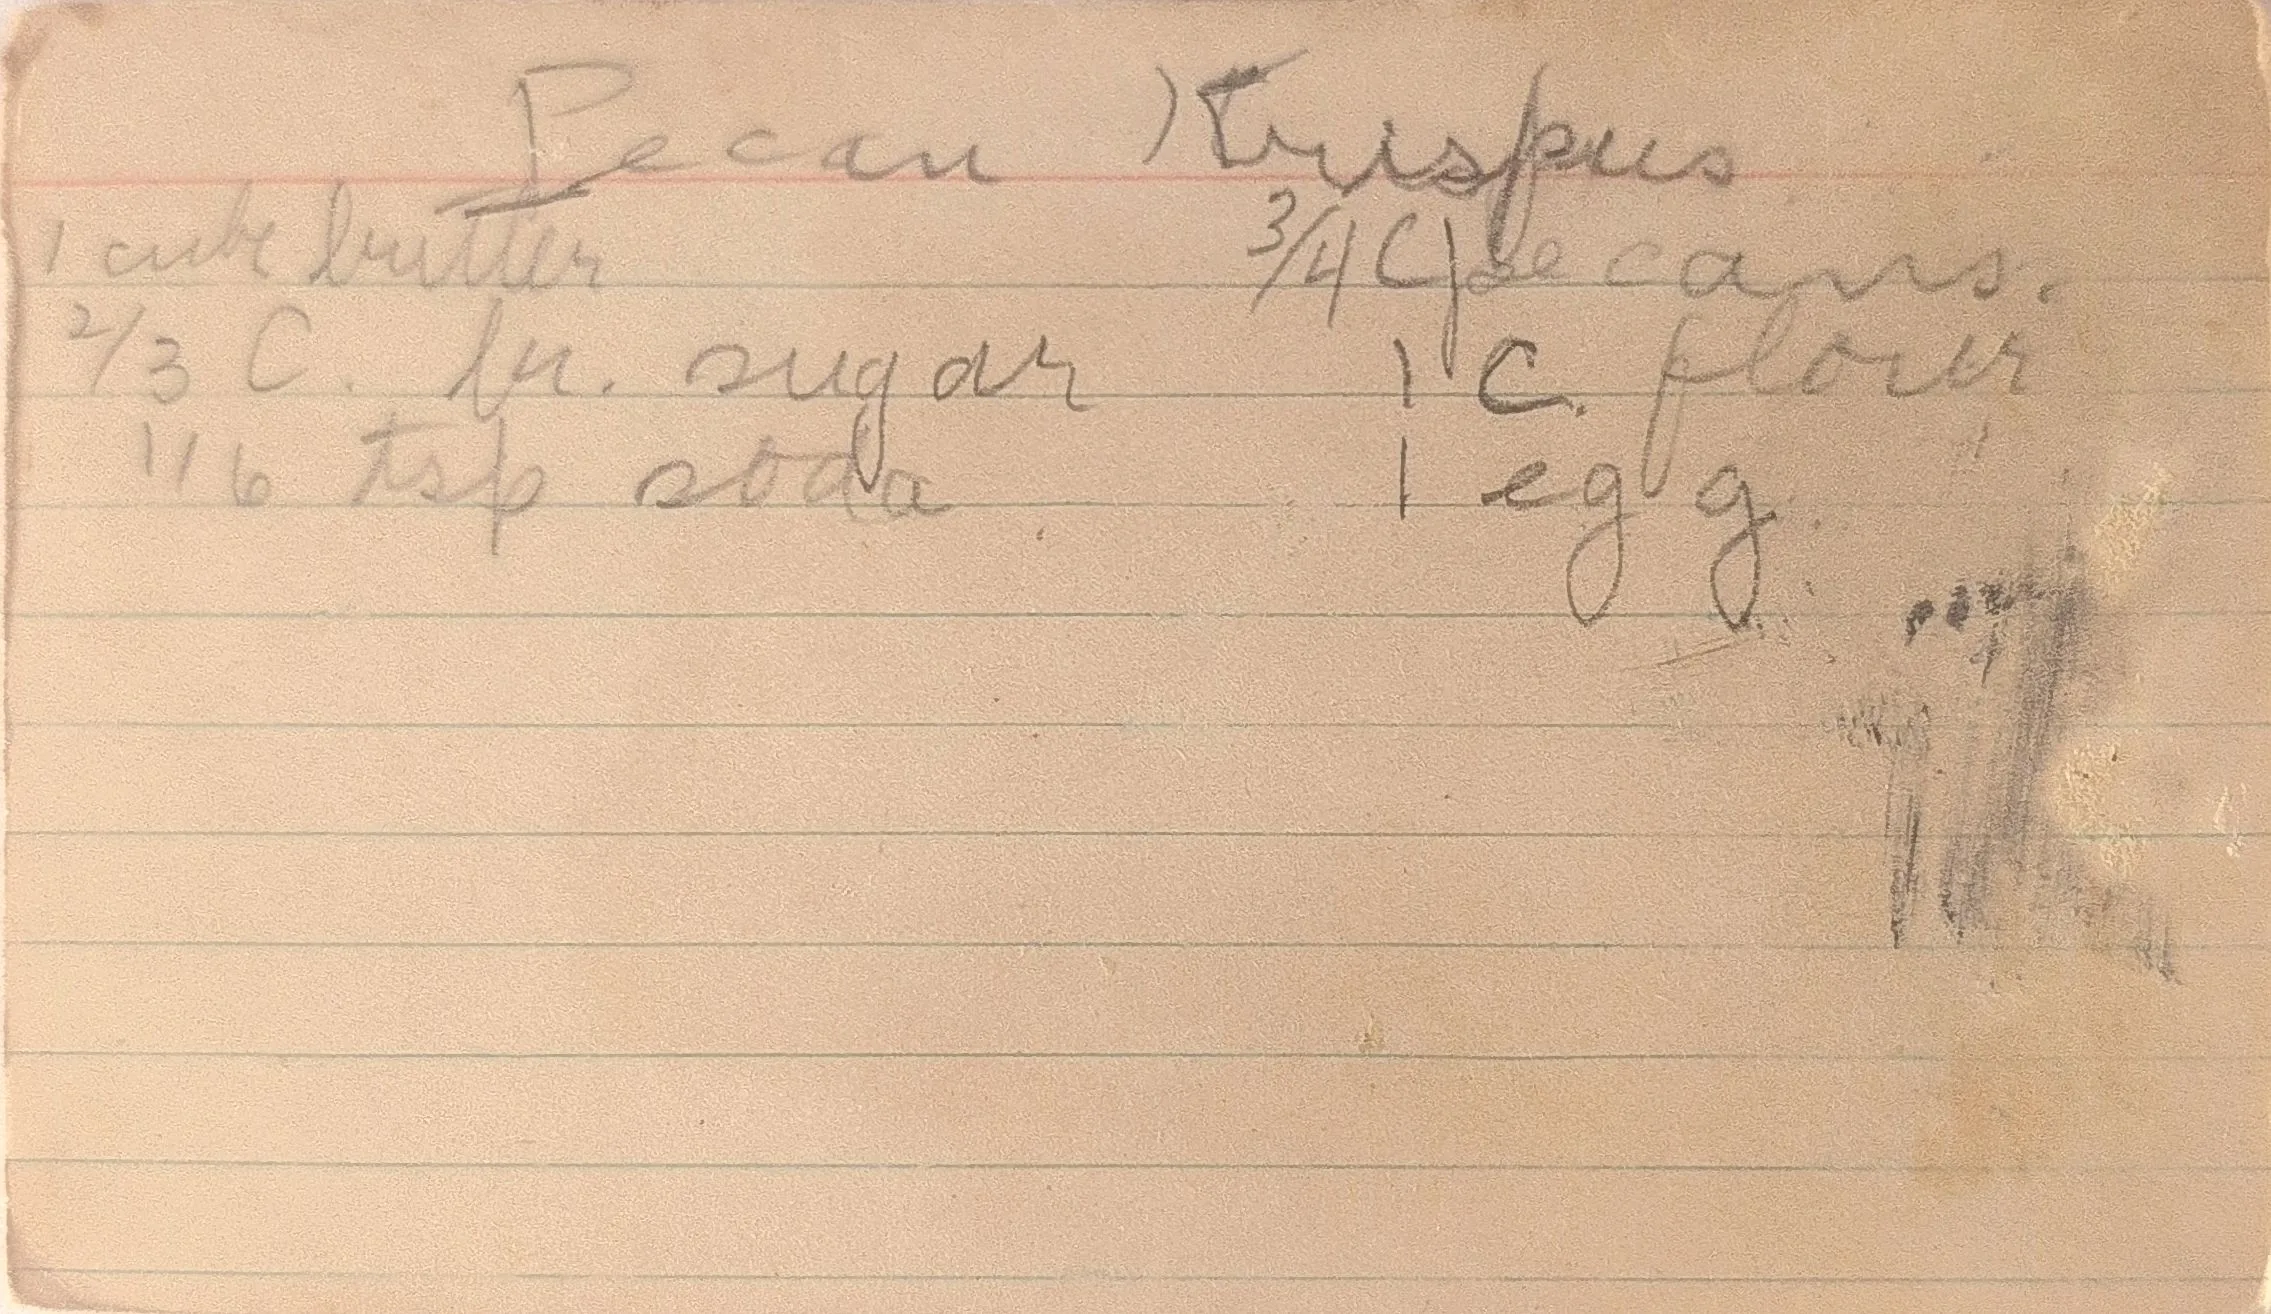 Pecan Krispies
1 cube butter 3/4 C pecans.
2/3 C. br. sugar 1 C. flour
1/16 tsp soda 1 egg.